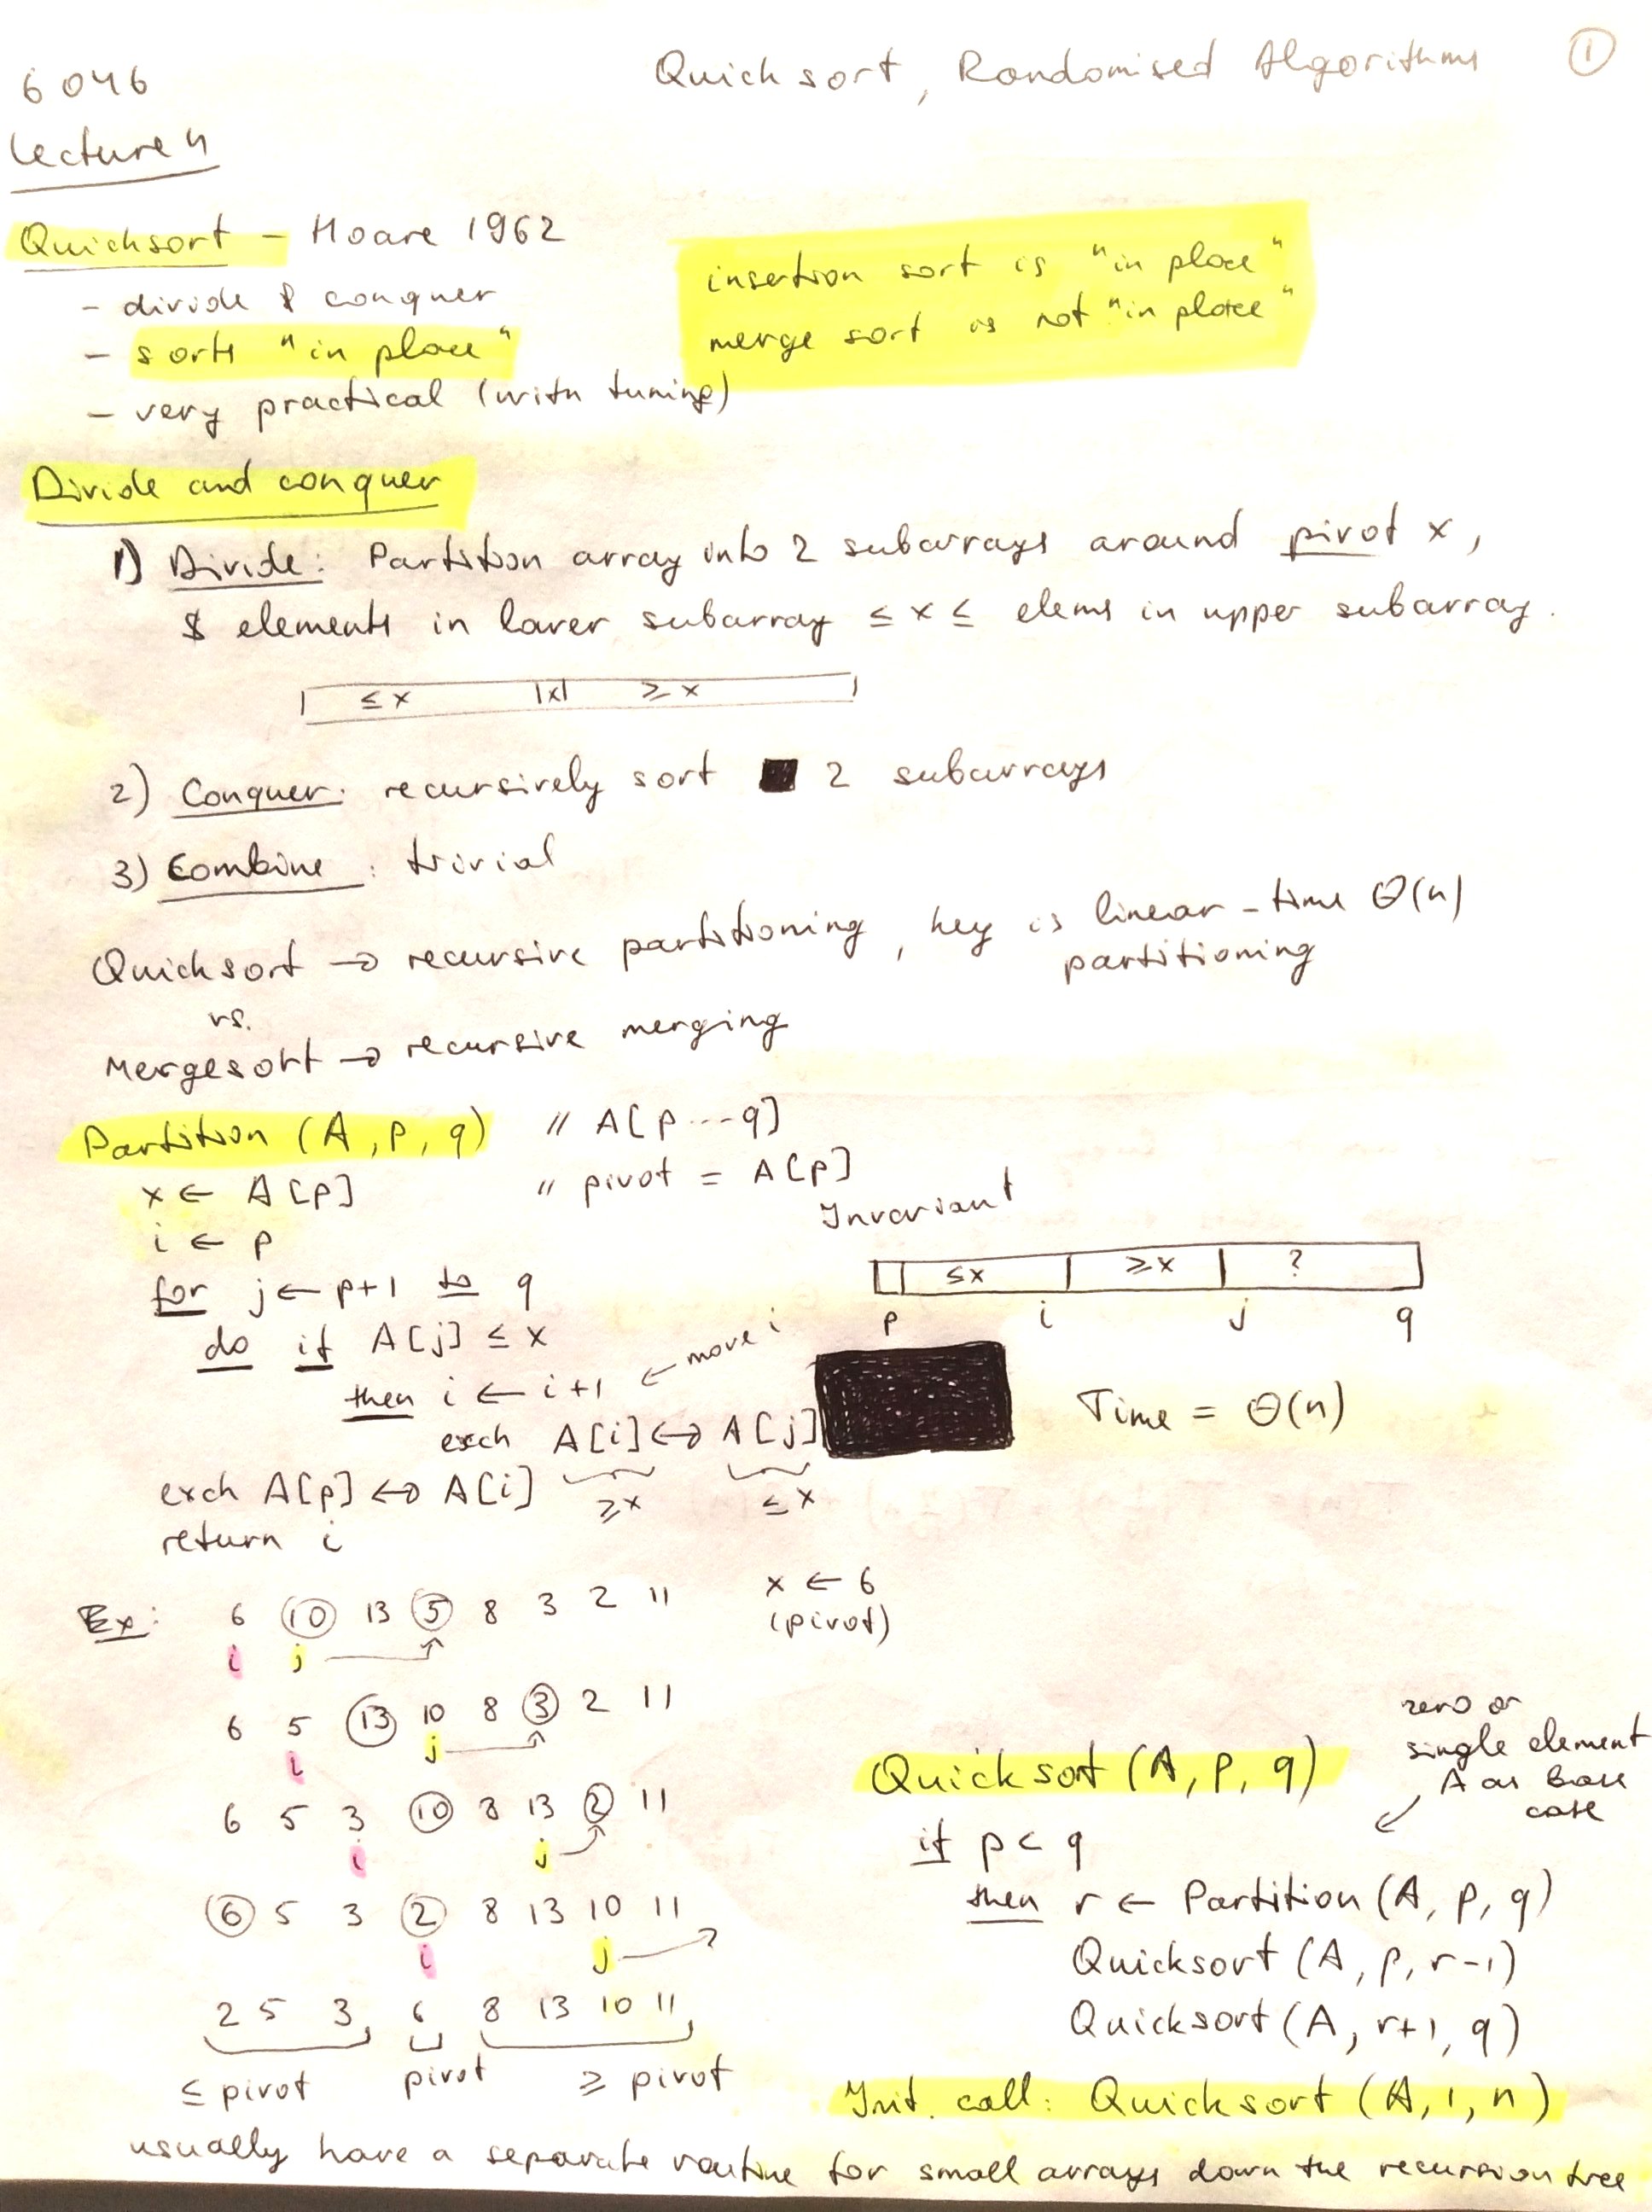 6046 Quicksort, Randomised Algorithms 1
Lecture 4
Quicksort - Hoare 1962
- divide & conquer
- sorts "in place"
- very practical (with tuning)
insertion sort is "in place"
merge sort is not "in place"
Divide and conquer
1) Divide: Partition array into 2 subarrays around pivot x,
& elements in lower subarray ≤ x ≤ elems in upper subarray.
≤ x |x| ≥ x
2) Conquer: recursively sort 2 subarrays
3) Combine: trivial
Quicksort → recursive partitioning, key is linear-time Θ(n)
partitioning
vs.
Mergesort → recursive merging
Partition (A, p, q) // A[p...q]
x ← A[p] // pivot = A[p]
i ← p
for j ← p+1 to q
do if A[j] ≤ x
then i ← i+1 ← move i
exch A[i] ↔ A[j]
≥x ≤x
exch A[p] ↔ A[i]
return i
Invariant
≤x ≥x ?
p i j q
Time = Θ(n)
Ex: 6 10 13 5 8 3 2 11
i j
x ← 6
(pivot)
6 5 13 10 8 3 2 11
i j
6 5 3 10 8 13 2 11
i j
6 5 3 2 8 13 10 11
i j
2 5 3 6 8 13 10 11
≤ pivot pivot ≥ pivot
zero or
single element
A as base
case
Quicksort (A, p, q)
if p < q
then r ← Partition (A, p, q)
Quicksort (A, p, r-1)
Quicksort (A, r+1, q)
Init. call: Quicksort (A, 1, n)
usually have a separate routine for small arrays down the recursion tree